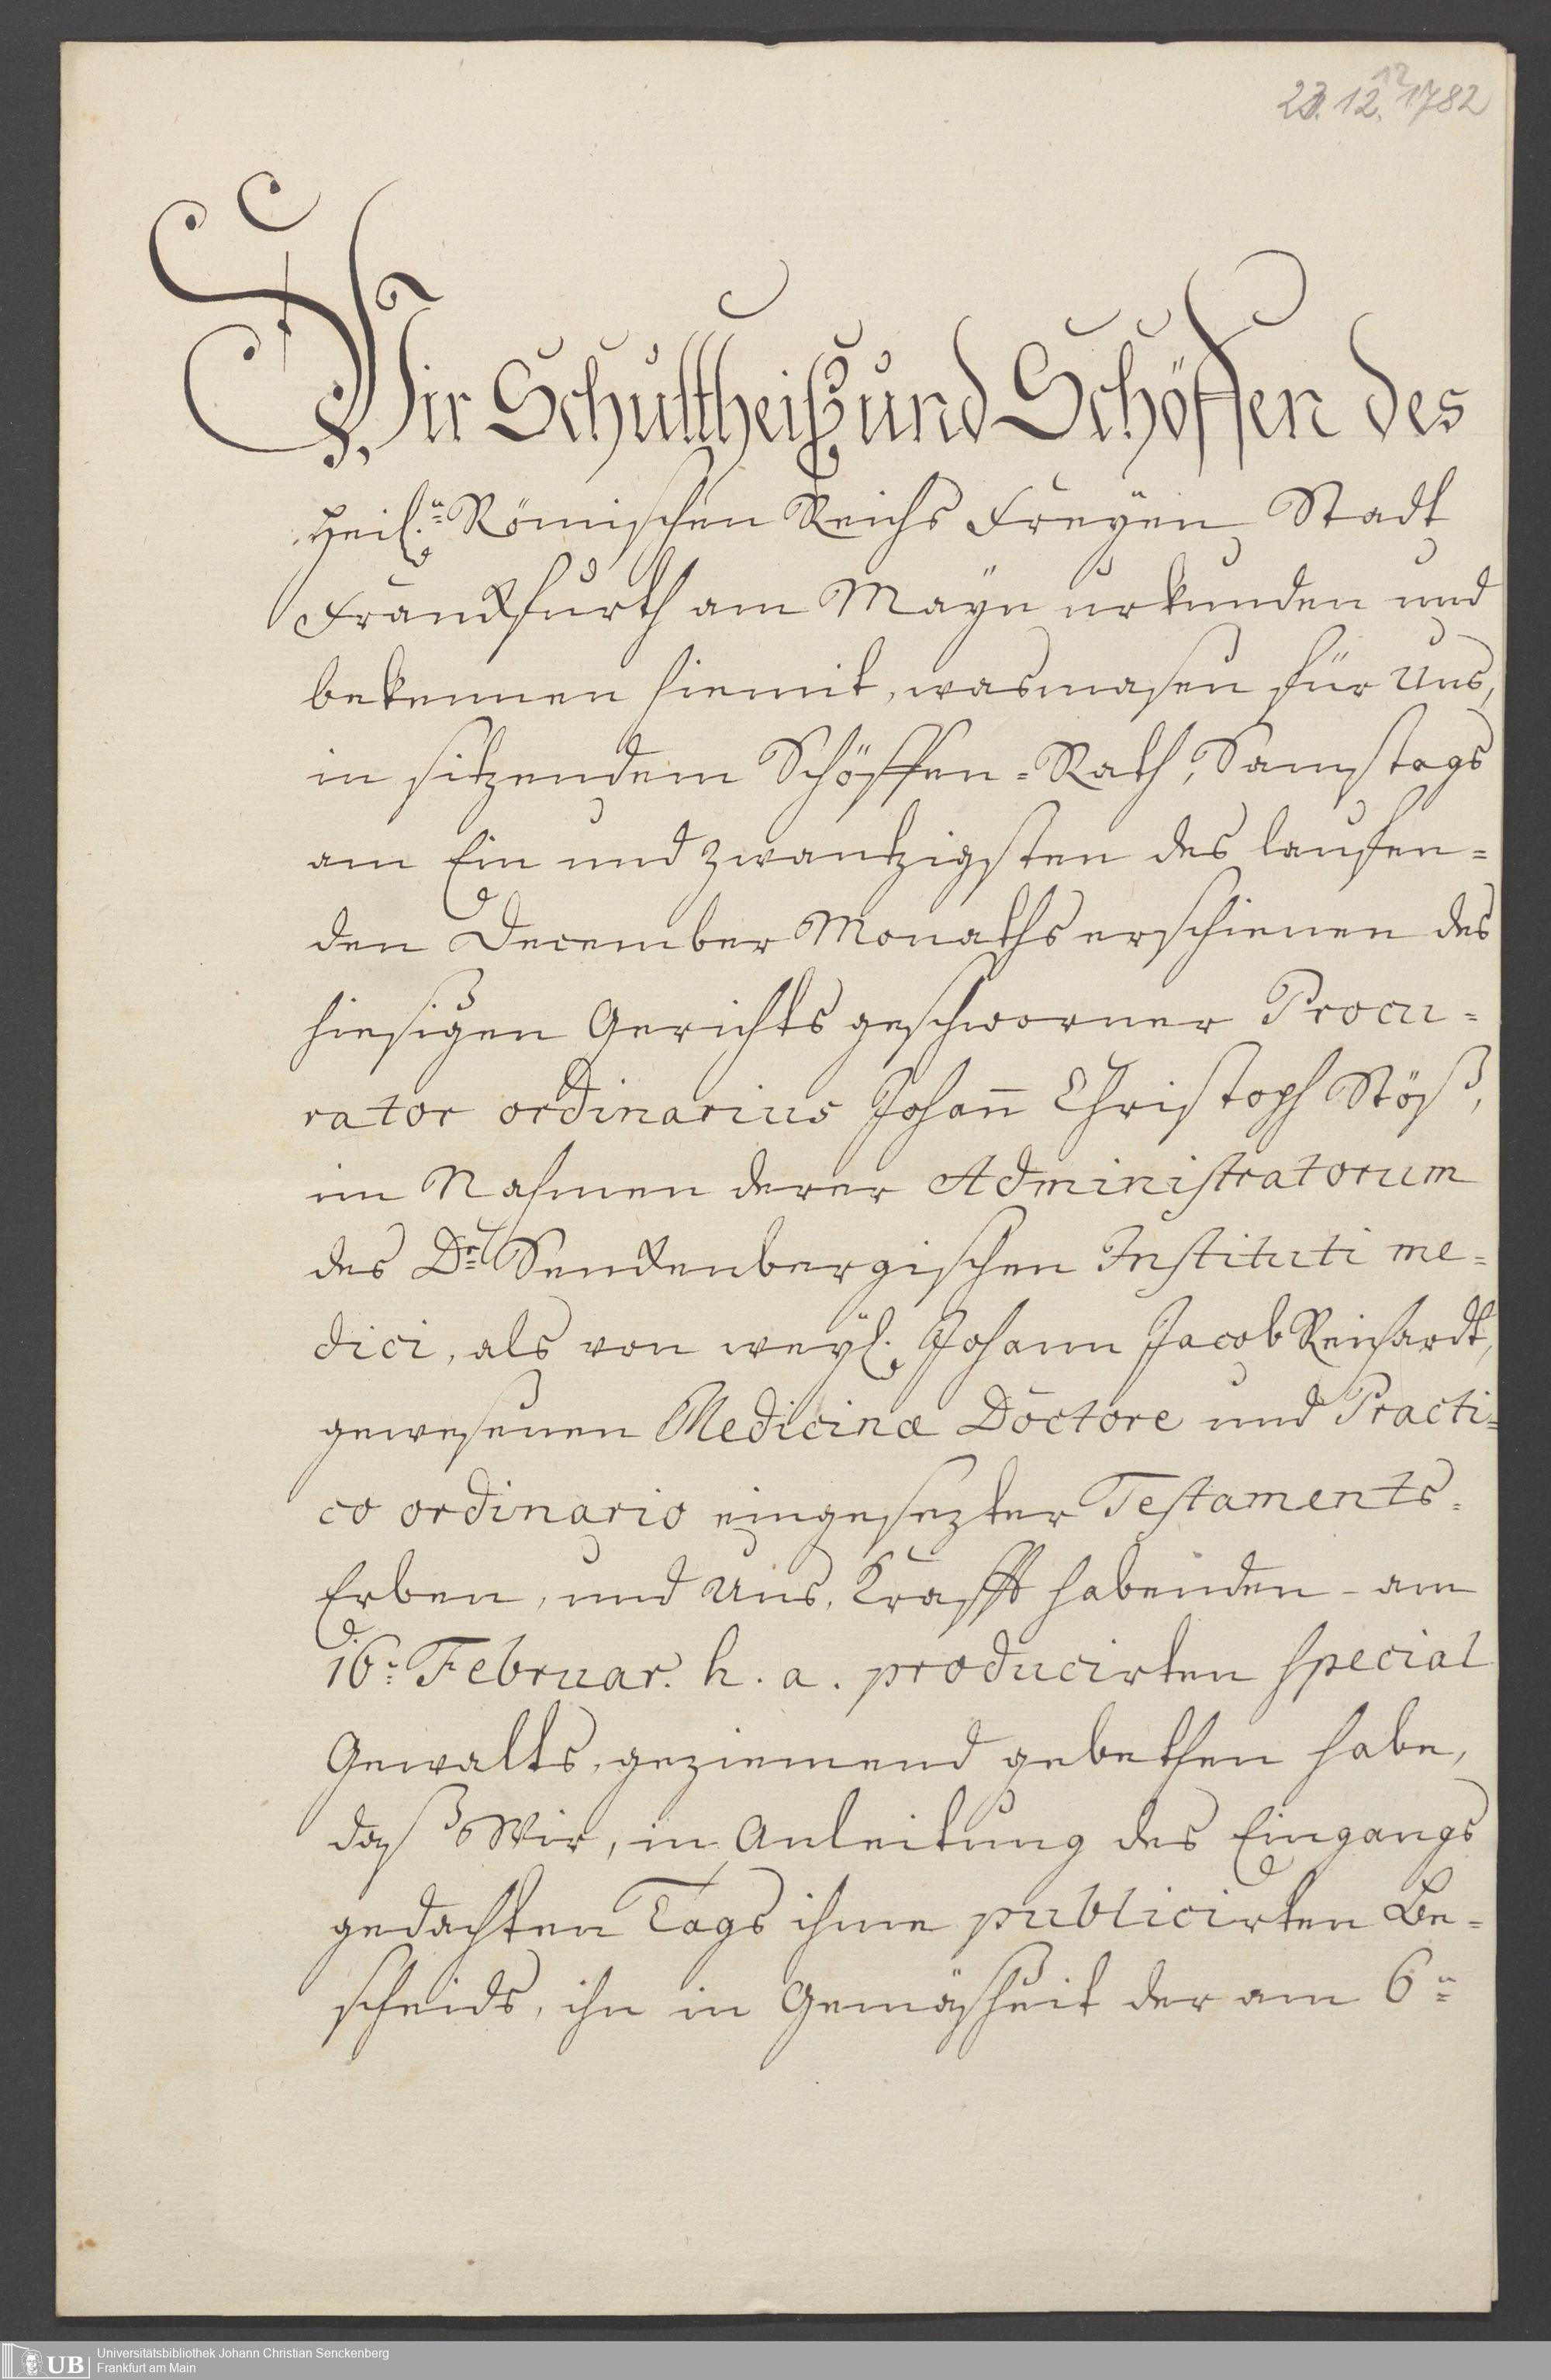 23.12.1782
Wir Schultheiß und Schöffen des
Heil.n Römischen Reichs Freyen Stadt
Franckfurth am Mayn urkunden und
bekennen hiemit, wasmasen für Uns,
in sitzendem Schöffen-Rath, Samstags
am Ein und zwantzigsten des laufen-
den December Monaths erschienen des
hiesigen Gerichts geschworner Procu-
rator ordinarius Johann Christoph Stöß,
im Nahmen derer Administratorum
des Dr. Senckenbergischen Instituti me-
dici, als von weyl. Johann Jacob Reinhardt,
gewesenen Medicinæ Doctore und Practi-
co ordinario eingesezter Testaments-
Erben, und Uns, Krafft habenden - am
16n Februar. h. a. producirten special
Gewalts, geziemend gebethen habe,
daß Wir, in Anleitung des Eingangs
gedachten Tags ihme publicirten Be-
scheids, ihn in Gemäsheit der am 6n
UB Universitätsbibliothek Johann Christian Senckenberg
Frankfurt am Main